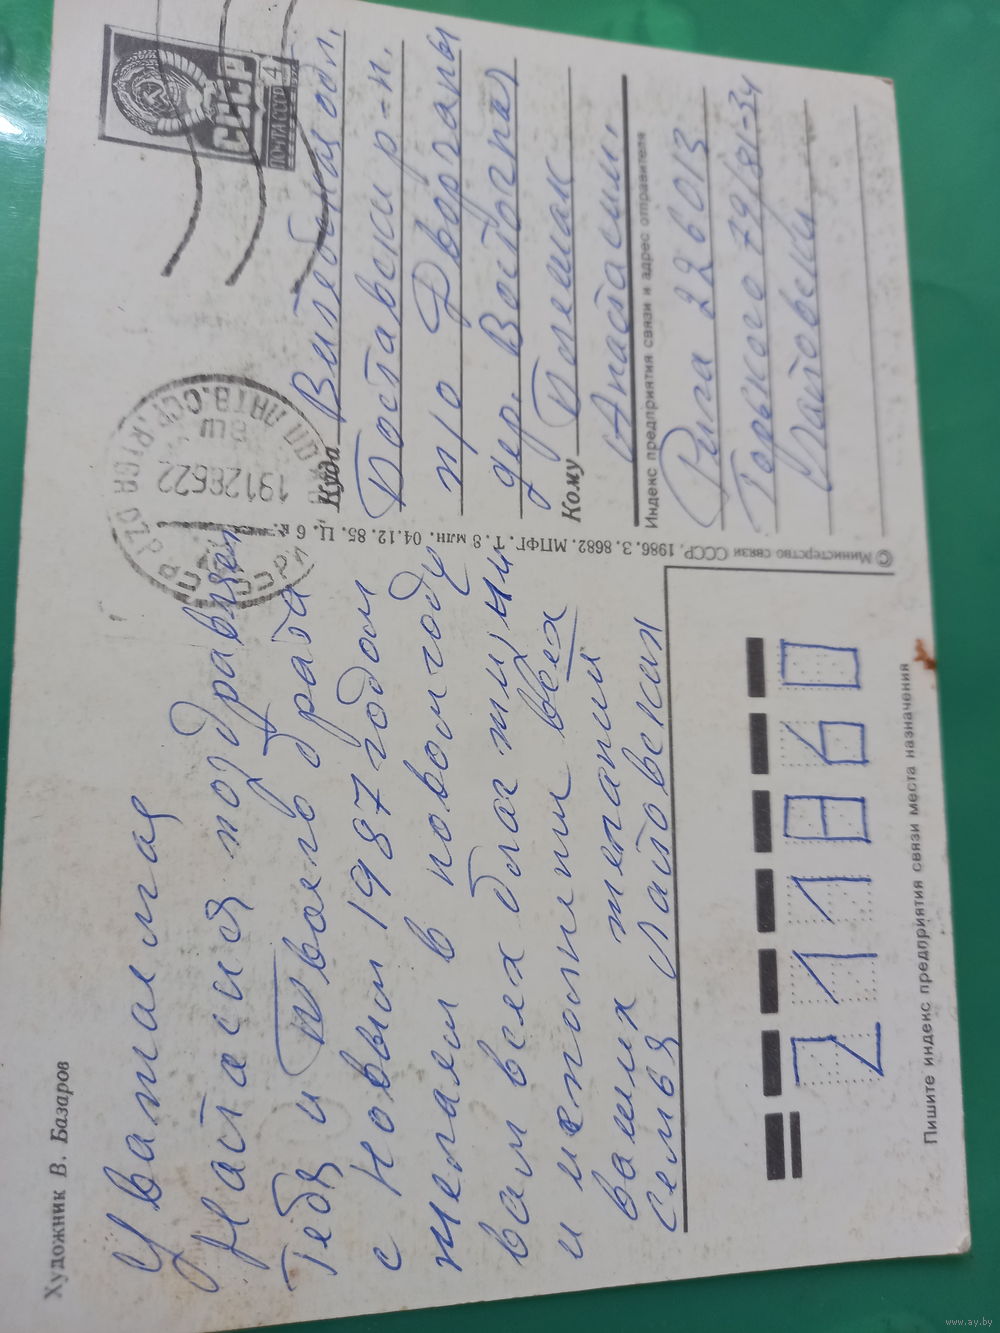 Художник В. Базаров
Уважаемая
Настасия поздравляем
Тебя и Твоего брата
с Новым 1987 годом
желаем в новом году
вам всех благ жизни
и исполнения всех
ваших желаний
семья Лайтовских
СССР
4
ПОЧТА СССР
РИГА
ПП ЛАТВ.ССР. RIGA
19128622
Куда Витебская обл.
Поставский р-н.
п/о Дворчаны
дер. Востогна
Кому
Анастасии.
Индекс предприятия связи и адрес отправителя
Рига 226013
Горького 79/81-34
Лайтовский
© Министерство связи СССР. 1986. З. 8682. МПФГ. Т. 8 млн. 04.12. 85. Ц. 6 к.
211860
Пишите индекс предприятия связи места назначения
www.ay.by